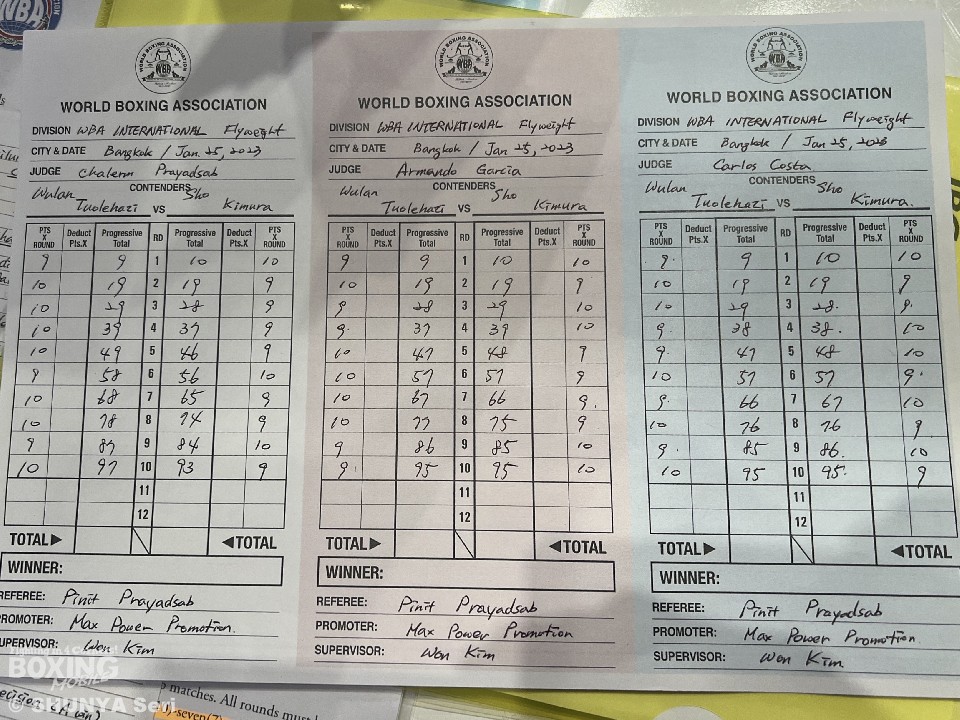 WBA
WORLD BOXING ASSOCIATION
WBA
WORLD BOXING ASSOCIATION
DIVISION WBA INTERNATIONAL Flyweight
CITY & DATE Bangkok / Jan 25, 2023
JUDGE Chalerm Prayadsab
CONTENDERS
Wulan Tuolehazi VS Sho Kimura
PTS X ROUND Deduct Pts.X Progressive Total RD Progressive Total Deduct Pts.X PTS X ROUND
9 9 1 10 10
10 19 2 19 9
10 29 3 28 9
10 39 4 37 9
10 49 5 46 9
9 58 6 56 10
10 68 7 65 9
10 78 8 74 9
9 87 9 84 10
10 97 10 93 9
11
12
TOTAL▶ ◀TOTAL
WINNER:
REFEREE: Pinit Prayadsab
PROMOTER: Max Power Promotion.
SUPERVISOR: Won Kim
WORLD BOXING ASSOCIATION
WBA
WORLD BOXING ASSOCIATION
DIVISION WBA INTERNATIONAL Flyweight
CITY & DATE Bangkok / Jan 25, 2023
JUDGE Armando Garcia
CONTENDERS
Wulan Tuolehazi VS Sho Kimura
PTS X ROUND Deduct Pts.X Progressive Total RD Progressive Total Deduct Pts.X PTS X ROUND
9 9 1 10 10
10 19 2 19 9
9 28 3 29 10
9. 37 4 39 10
10 47 5 48 9
10 57 6 57 9
10 67 7 66 9.
10 77 8 75 9
9 86 9 85 10
9. 95 10 95 10
11
12
TOTAL▶ ◀TOTAL
WINNER:
REFEREE: Pinit Prayadsab
PROMOTER: Max Power Promotion
SUPERVISOR: Won Kim
WORLD BOXING ASSOCIATION
WBA
WORLD BOXING ASSOCIATION
DIVISION WBA INTERNATIONAL Flyweight
CITY & DATE Bangkok / Jan 25, 2023
JUDGE Carlos Costa
CONTENDERS
Wulan Tuolehazi VS Sho Kimura.
PTS X ROUND Deduct Pts.X Progressive Total RD Progressive Total Deduct Pts.X PTS X ROUND
9. 9 1 10 10
10 19 2 19 9
10 29 3 28. 9.
9. 38 4 38. 10
9. 47 5 48 10
10 57 6 57 9.
9. 66 7 67 10
10 76 8 76 9
9. 85 9 86. 10
10 95 10 95. 9
11
12
TOTAL▶ ◀TOTAL
WINNER:
REFEREE: Pinit Prayadsab
PROMOTER: Max Power Promotion.
SUPERVISOR: Won Kim
BOXING
MOBILE
© SHUNYA Seri
matches. All rounds must